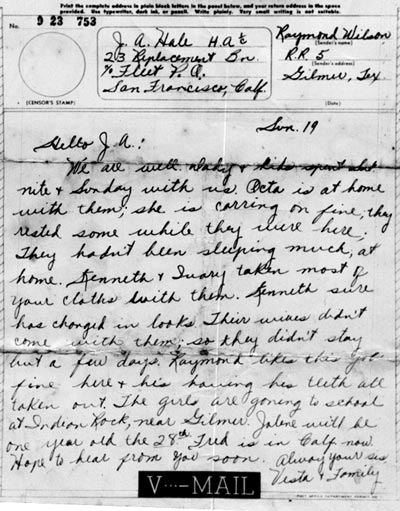 Print the complete address in plain block letters in the panel below, and your return address in the space provided. Use typewriter, dark ink, or pencil. Write plainly. Very small writing is not suitable.
No.
9 23 753
J. A. Hale H.A.
23 Replacement Bn
℅ Fleet P.O.
San Francisco, Calf.
Raymond Wilson
(Sender's name)
R.R. 5
(Sender's address)
Gilmer, Tex
(CENSOR'S STAMP)
(Date)
Sun. 19
Hello J. A.:
We are well. & kids spent
nite & Sunday with us. Octa is at home
with them, she is carring on fine, they
rested some while they were here.
They hadn't been sleeping much, at
home. Kenneth & taken most of
your cloths with them. Kenneth sure
has changed in looks. Their wives didn't
come with them, so they didn't stay
but a few days. Raymond likes this job
fine here & his having his teeth all
taken out. The girls are goning to school
at Indian Rock, near Gilmer. Jolene will be
one year old the 28th. Fred is in Calf now.
Hope to hear from you soon. Always your sis
Vesta & Family
V···—MAIL
POST OFFICE DEPARTMENT PERMIT NO.